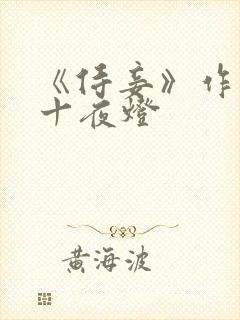 《侍妾》作
十夜燈
黄海波